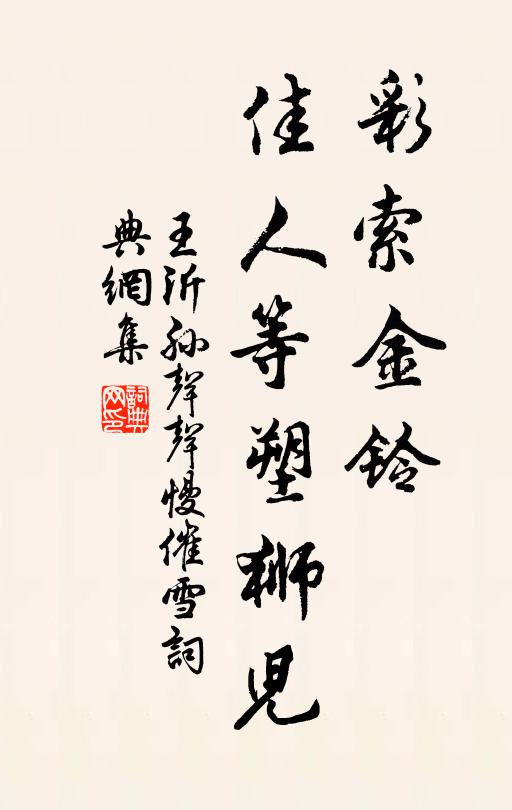 彩索金鈴
佳人等塑獅兒
王沂孫聲聲慢催雪詞
典網集
詞典
网印